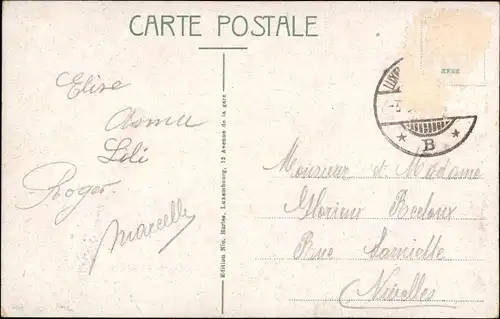 CARTE POSTALE
Elise
Asma
Lili
Roger
Marcelle
Edition Nic. Harles, Luxembourg, 12 Avenue de la gare
B
Monsieur et Madame
Glorieux
Rue
Nivelles